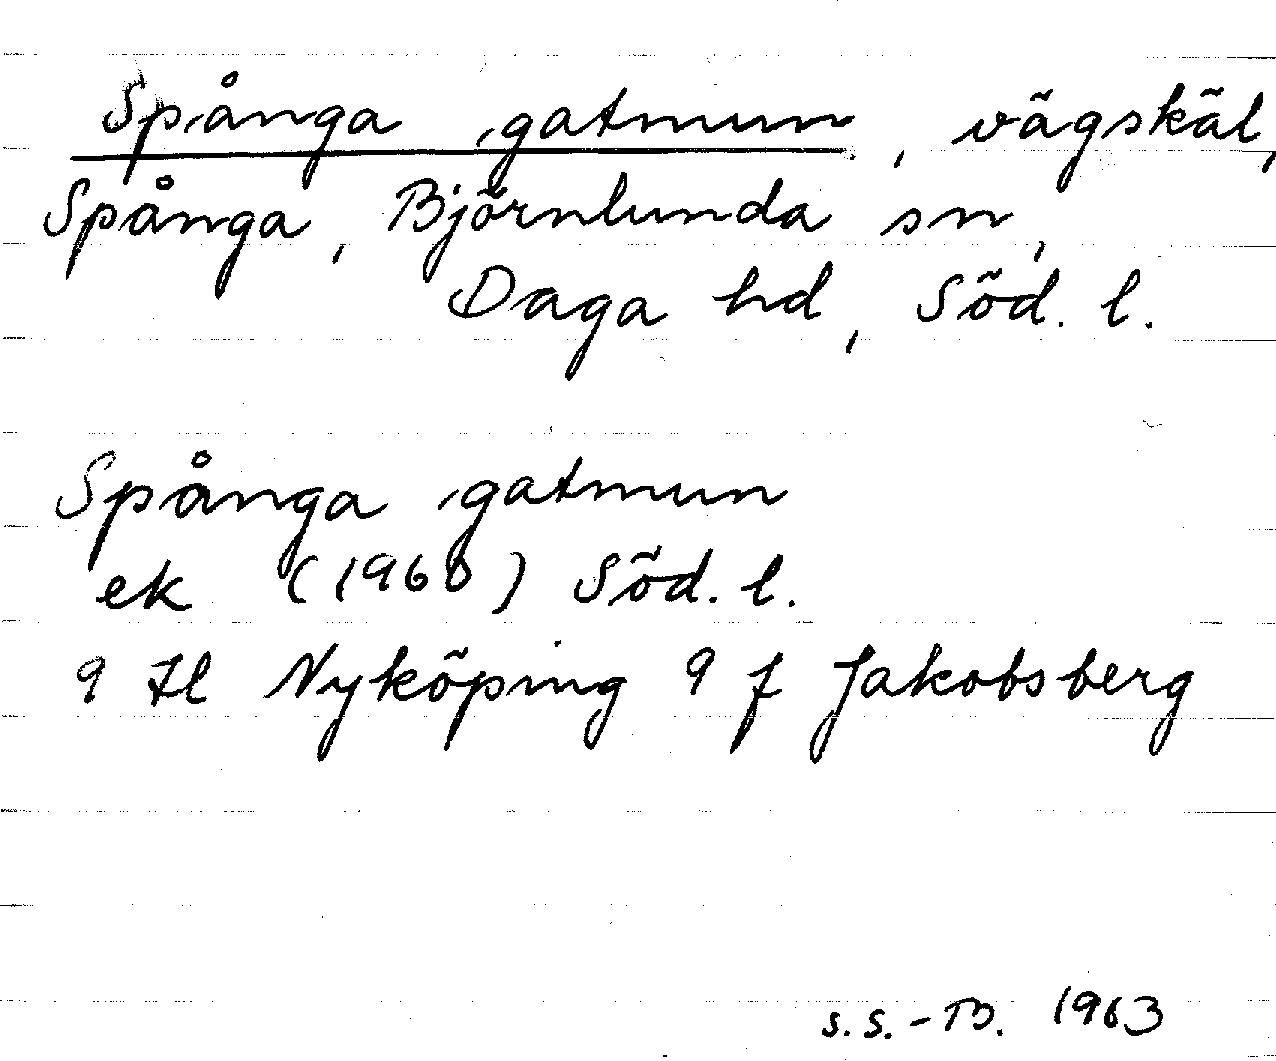 Spånga gatmun, vägskäl,
Spånga, Björnlunda sn,
Daga hd, Söd. l.
Spånga gatmun
ek (1960) Söd. l.
9 H Nyköping 9 f Jakobsberg
S.S.-B. 1963